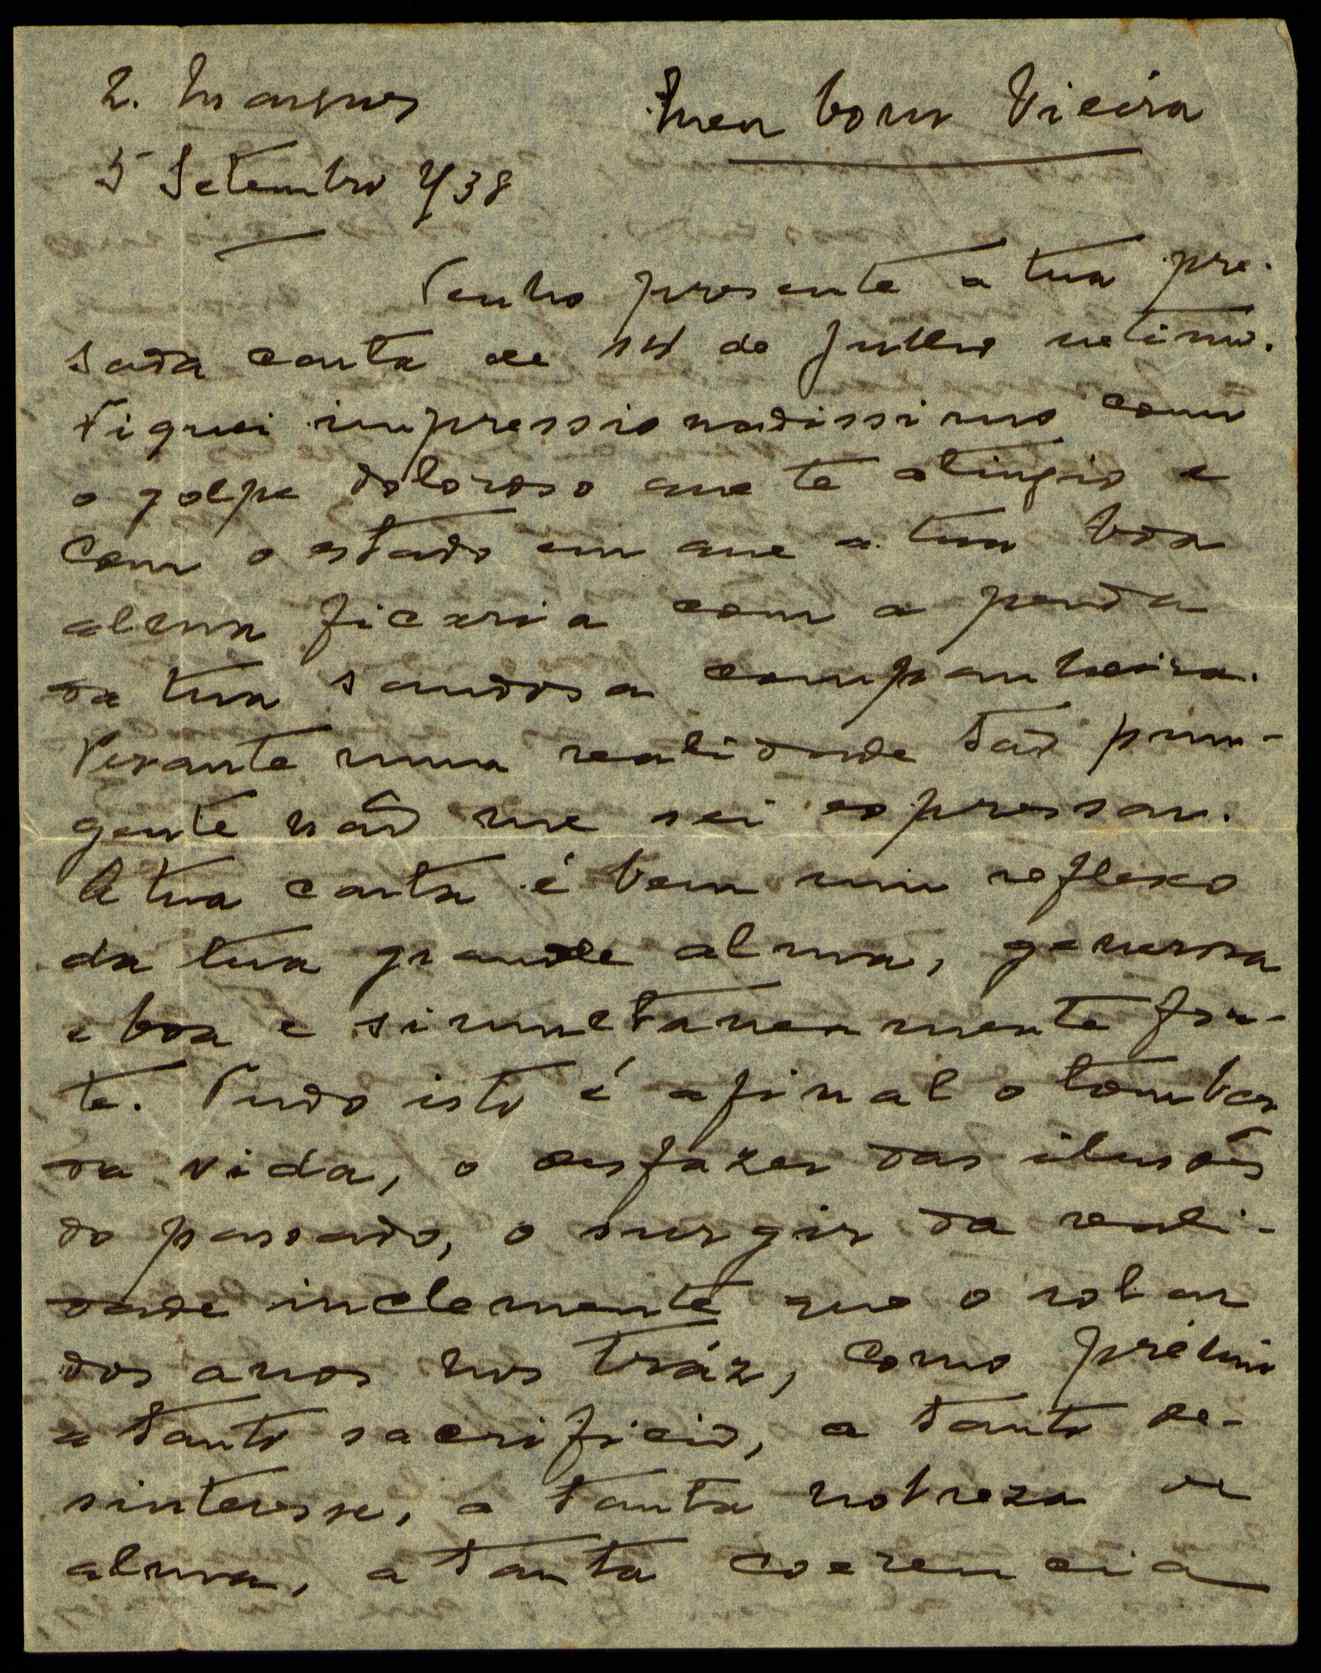 L. Marques
5 Setembro 938
Meu bom Vieira
Tenho presente a tua pre-
sada carta de 14 de Julho ultimo.
Fiquei impressionadissimo com
o golpe doloroso que te atingio e
com o estado em que a tua boa
alma ficaria com a perda
da tua saudosa companheira.
Perante uma realidade tão pun-
gente não me sei expressar.
A tua carta é bem um reflexo
da tua grande alma, generosa
e boa e simultaneamente for-
te. Tudo isto é afinal o tombar
da vida, o desfazer das ilusões
do passado, o surgir da reali-
dade inclemente que o rolar
dos anos nos tráz, como prémio
a tanto sacrificio, a tanto de-
sinteresse, a tanta nobreza de
alma, a tanta coerencia